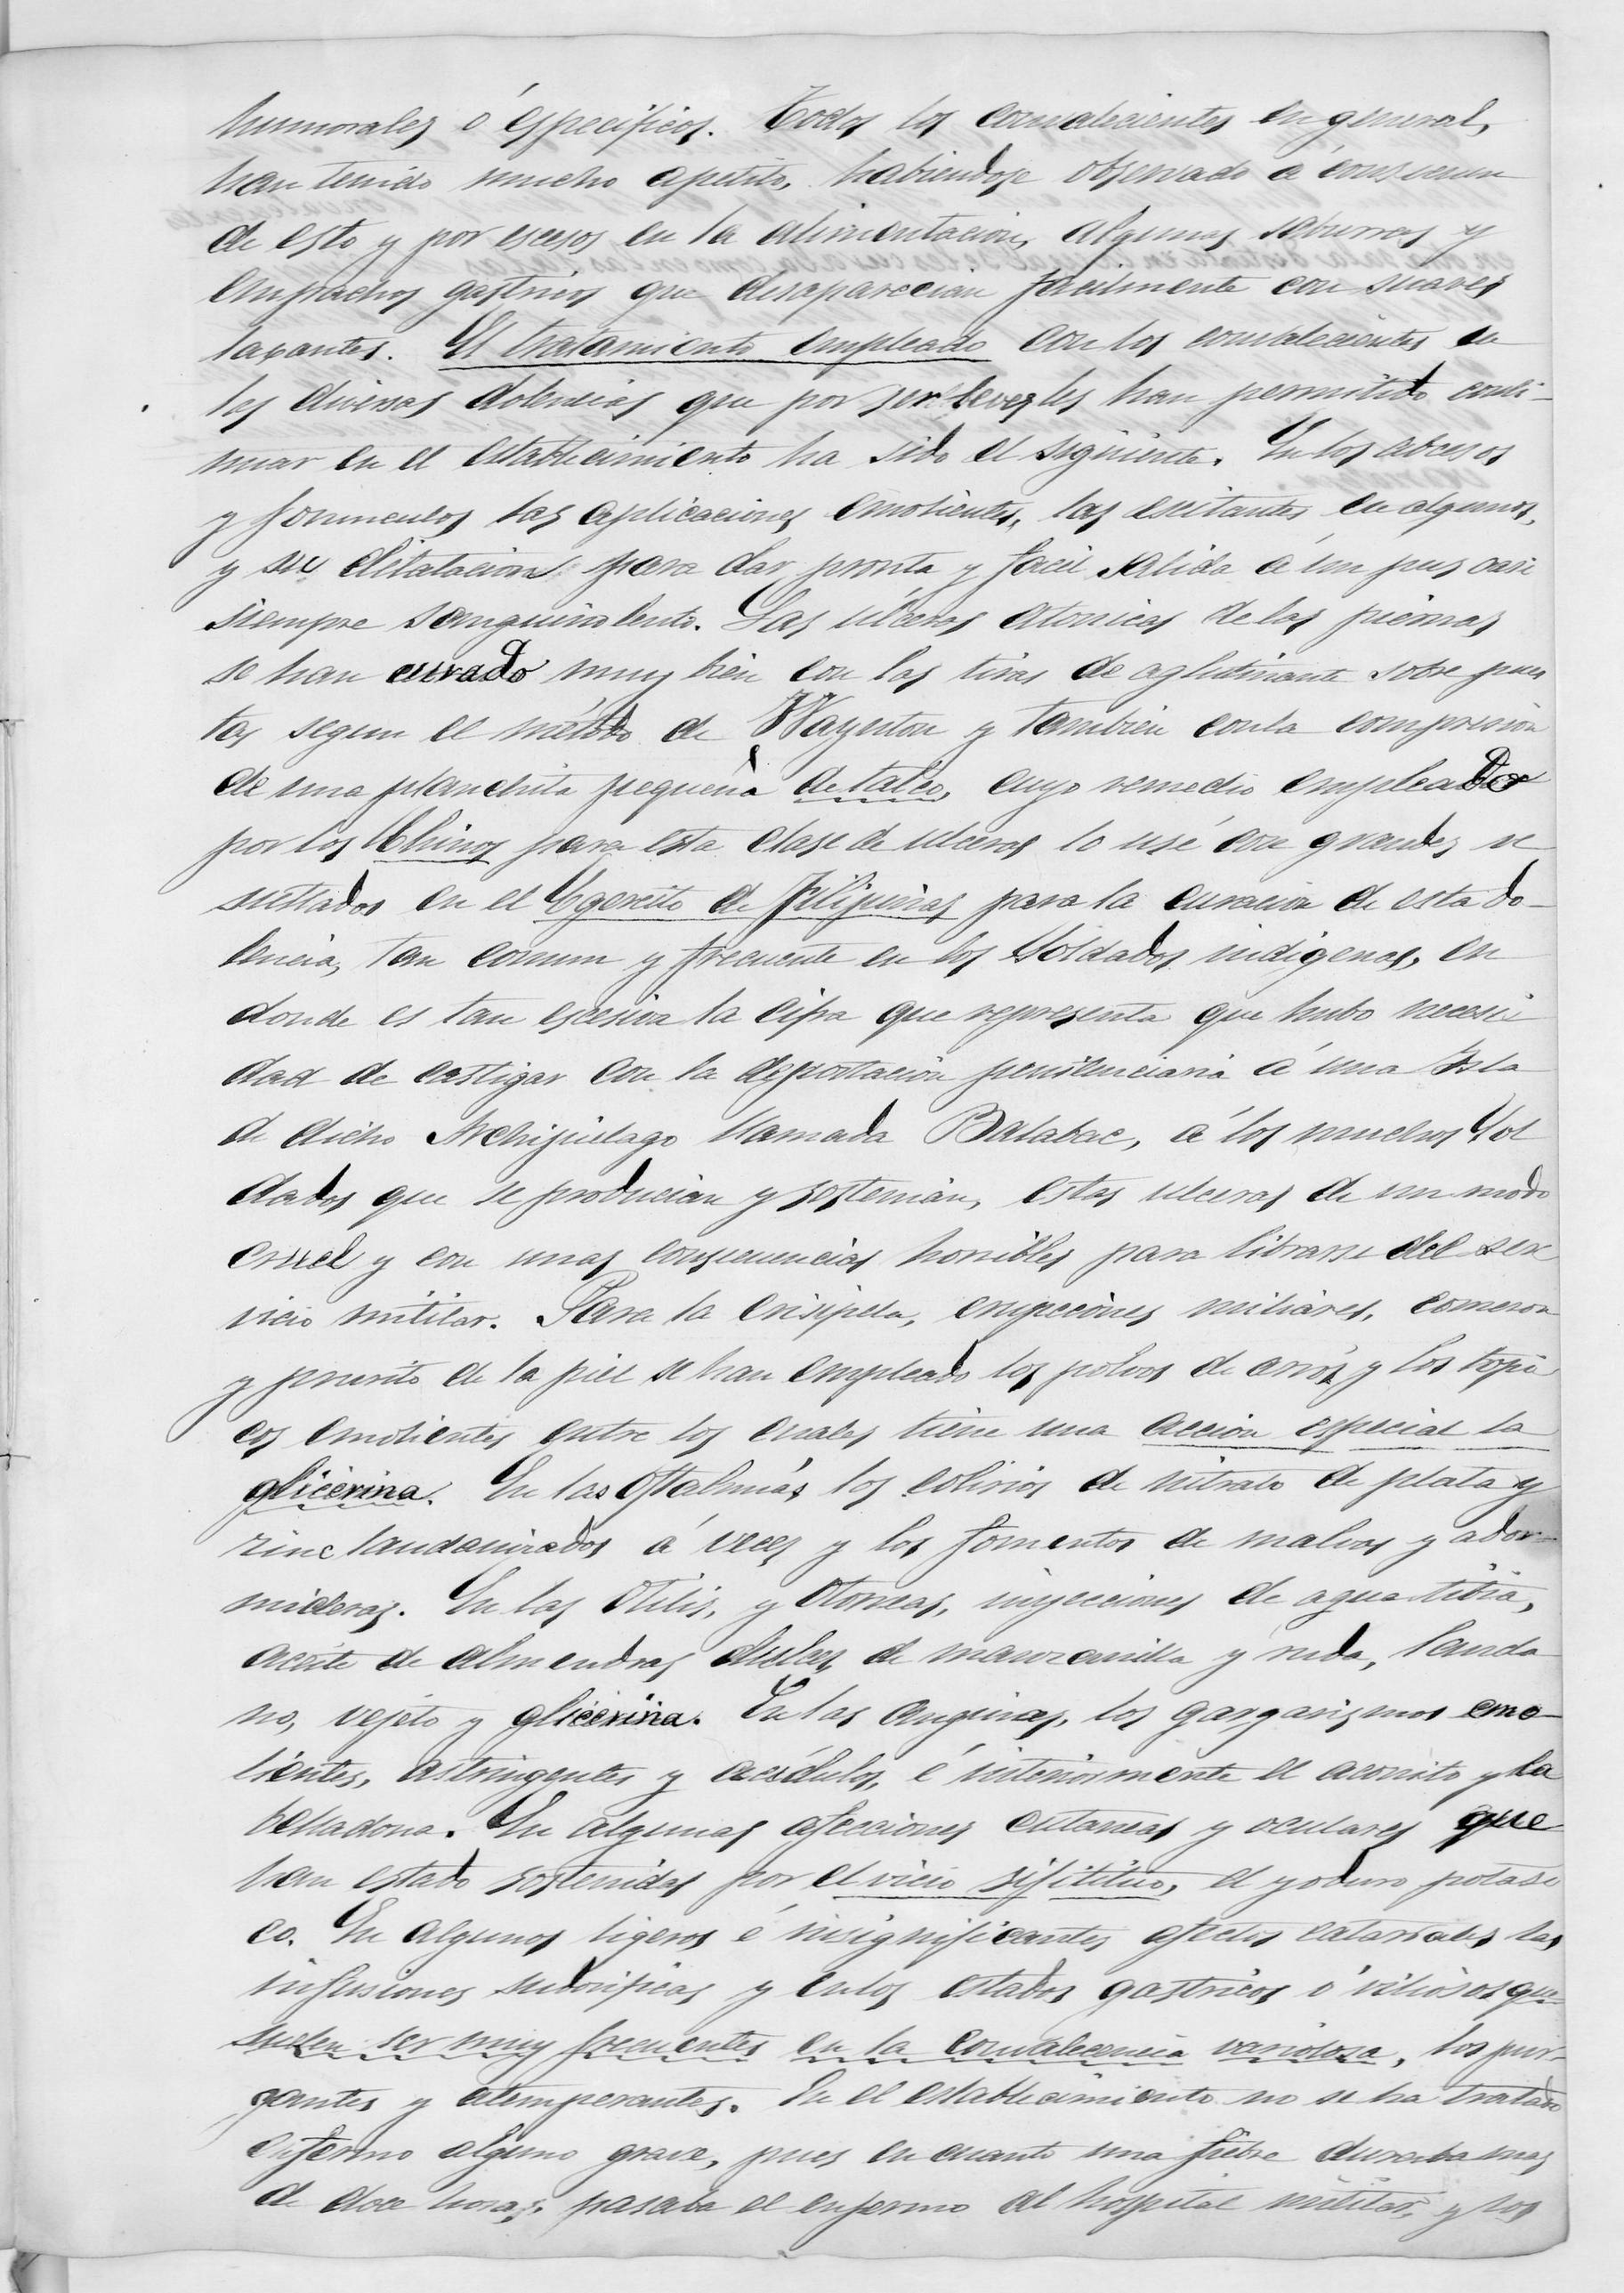 humorales ó específicos. Todos los convalecientes en general,
han tenido mucho apetito, habiendose observado á consecuen
de esto y por escesos en la alimentacion, algunas saburras y
empachos gastricos que desaparecian facilmente con suaves
laxantes. El tratamiento empleado con los convalecientes en
las diversas dolencias que por ser leves les han permitido conti-
nuar en el establecimiento ha sido el siguiente. En los abcesos
y forunculos las aplicaciones emolientes, las escitantes en algunos,
y su dilatacion para dar pronta y facil salida á un pus casi
siempre sanguinolento. Las ulceras atonicas de las piernas
se han curado muy bien con las tiras de aglutinante sobre pues
tas segun el método de Waynton y tambien con la compresion
de una planchita pequeña de talco, cuyo remedio empleado
por los Chinos para esta clase de ulceras lo usé con grandes re
sultados en el Egercito de Filipinas para la curacion de esta do-
lencia, tan comun y frecuente en los Soldados indigenas, en
donde es tan escesiva la cifra que representa que hubo necesi
dad de castigar con la deportacion penitenciaria á una Isla
de dicho Archipielago llamada Balabac, á los muchos Sol
dados que se producian y sostenian, estas ulceras de un modo
cruel y con unas consecuencias horribles para librarse del ser
vicio militar. Para la erisipela, erupciones miliares, comezon
y prurito de la piel se han empleado los polvos de arroz y los topi
cos emolientes entre los cuales tiene una accion especial la
glicerina. En las oftalmias los colirios de nitrato de plata y
zinc laudanizados á veces y los fomentos de malvas y ador-
mideras. En las Otitis, y Otorreas, inyecciones de agua tibia,
aceite de almendras dulces de manzanilla y ruda, lauda
no, vejeto y glicerina. En las anginas, los gargarismos emo-
lientes, astringentes y acidulos, é interiormente el aconito y la
belladona. En algunas afecciones cutaneas y oculares que
han estado sostenidas por el vicio sifilitico, el yoduro potasi
co. En algunos ligeros é insignificantes afectos catarrales las
infusiones sudorificas y en los estados gastricos ó viliosos que
suelen ser muy frecuentes en la convalecencia variolosa, los pur-
gantes y atemperantes. En el establecimiento no se ha tratado
enfermo alguno grave, pues en cuanto una fiebre duraba mas
de doce horas, pasaba el enfermo al hospital militar, y los